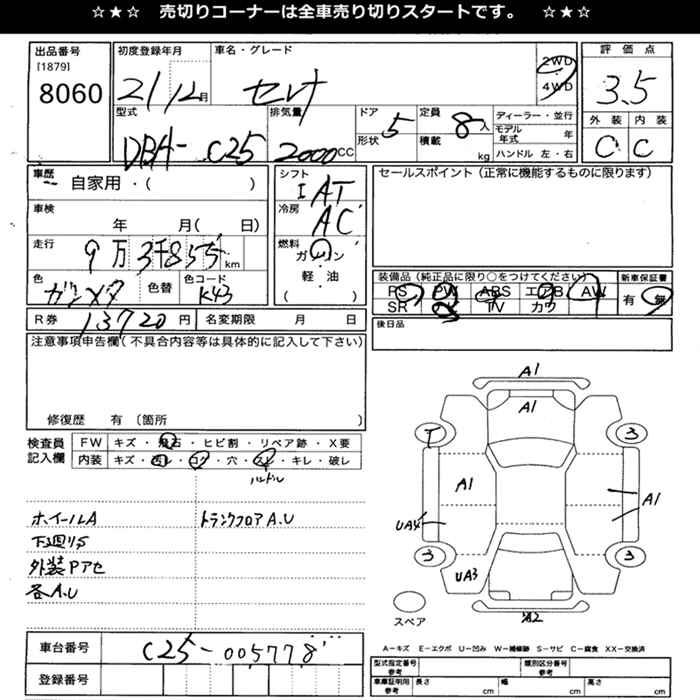 ☆★☆ 売切りコーナーは全車売り切りスタートです。 ☆★☆
出品番号
[1879]
8060
初度登録年月
21/12月
車名・グレード
セレナ
2WD
4WD
評価点
3.5
外装 内装
C C
型式
DBA-C25
排気量
2000cc
ドア
5
形状
定員
8人
積載
kg
ディーラー・並行
モデル年式 年
ハンドル 左・右
車歴
自家用・( )
車検
年 月( 日)
走行
9万3千855km
色
ガンメタ
色替
色コード
K43
シフト
IAT
冷房
AC
燃料
ガソリン
軽・油
( )
セールスポイント(正常に機能するものに限ります)
装備品(純正品に限り○をつけてください)
PS PW ABS エアB AW
SR TV カワ
新車保証書
有 無
後日品
R券 13720円
名変期限 月 日
注意事項申告欄(不具合内容等は具体的に記入して下さい)
修復歴 有 〔箇所 〕
検査員記入欄
FW キズ・飛石・ヒビ割・リペア跡・X要
内装 キズ・汚レ・コゲ・穴・スレ・キレ・破レ
ハンドル
ホイールA
トランクフロアA.U
下廻りS
外装Pアセ
各A.U
A1
A1
3
A1
A1
UA4
3
3
UA3
スペア
A−キズ E−エクボ U−凹み W−補修跡 S−サビ C−腐食 XX−交換済
車台番号
C25-005778
登録番号
型式指定番号
参考
類別区分番号
参考
車庫証明用
参考
長さ cm 幅 cm 高さ cm